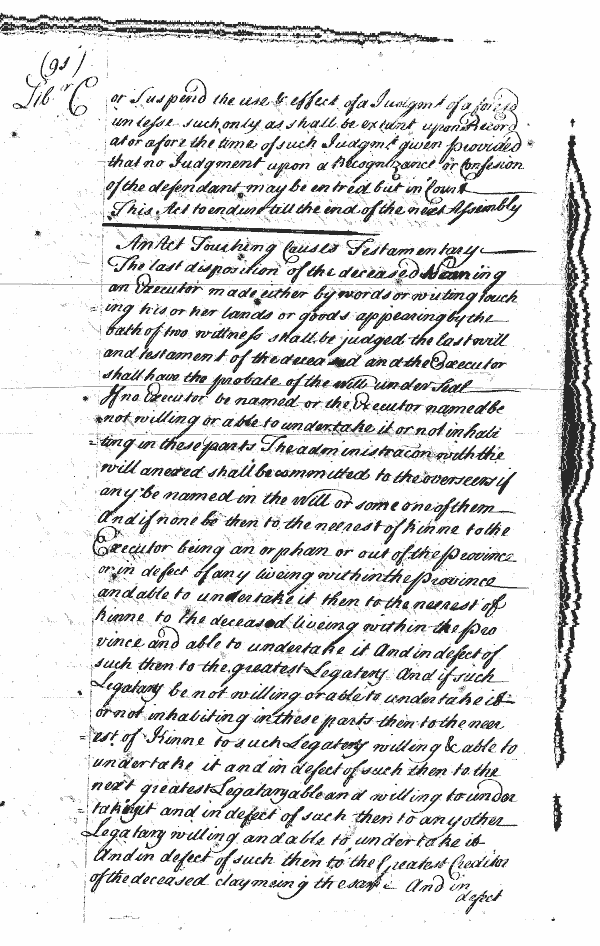 (95)
Libr C
or Suspend the use & effect of a Judgmt of aforesd
unlesse such only as shall be extant upon Record
at or afore the time of such Judgmt given provided
that no Judgment upon a Recognizance or Confesion
of the defendant may be entred but in Court
This Act to endure till the end of the next Assembly
An Act Touching Causes Testamentary
The last disposition of the deceased Naming
an Executor made either by words or writing touch
ing his or her lands or goods appearing by the
oath of two wittness shall be judged the last will
and testament of the deceased and the Executor
shall have the probate of the will under Seal
If no Executor be named or the Executor named be
not willing or able to undertake it or not inhabi
ting in these parts The administracon with the
will anexed shall be committed to the overseers if
any be named in the Will or some one of them
And if none be then to the neerest of kinne to the
Executor being an orphan or out of the Province
or in defect of any liveing within the Province
and able to undertake it then to the neerest of
kinne to the deceased liveing within the Pro
vince and able to undertake it And in defect of
such then to the greatest Legatary And if such
Legatary be not willing or able to undertake it
or not inhabiting in these parts then to the neer
est of Kinne to such Legatary willing & able to
undertake it and in defect of such then to the
next greatest Legatary able and willing to under
take it and in defect of such then to any other
Legatary willing and able to undertake it
And in defect of such then to the Greatest Creditor
of the deceased claymeing the same And in
defect